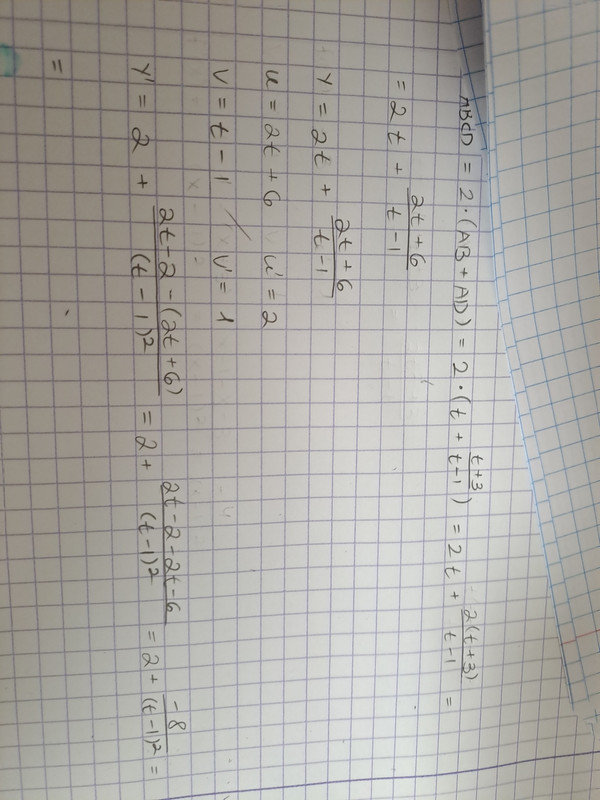 ABCD = 2·(AB + AD) = 2·(t + \frac{t+3}{t-1}) = 2t + \frac{2(t+3)}{t-1} =
= 2t + \frac{2t+6}{t-1}
y = 2t + \frac{2t+6}{t-1}
u = 2t+6 u' = 2
v = t-1 v' = 1
y' = 2 + \frac{2t-2-(2t+6)}{(t-1)^2} = 2 + \frac{2t-2-2t-6}{(t-1)^2} = 2 + \frac{-8}{(t-1)^2} =
=